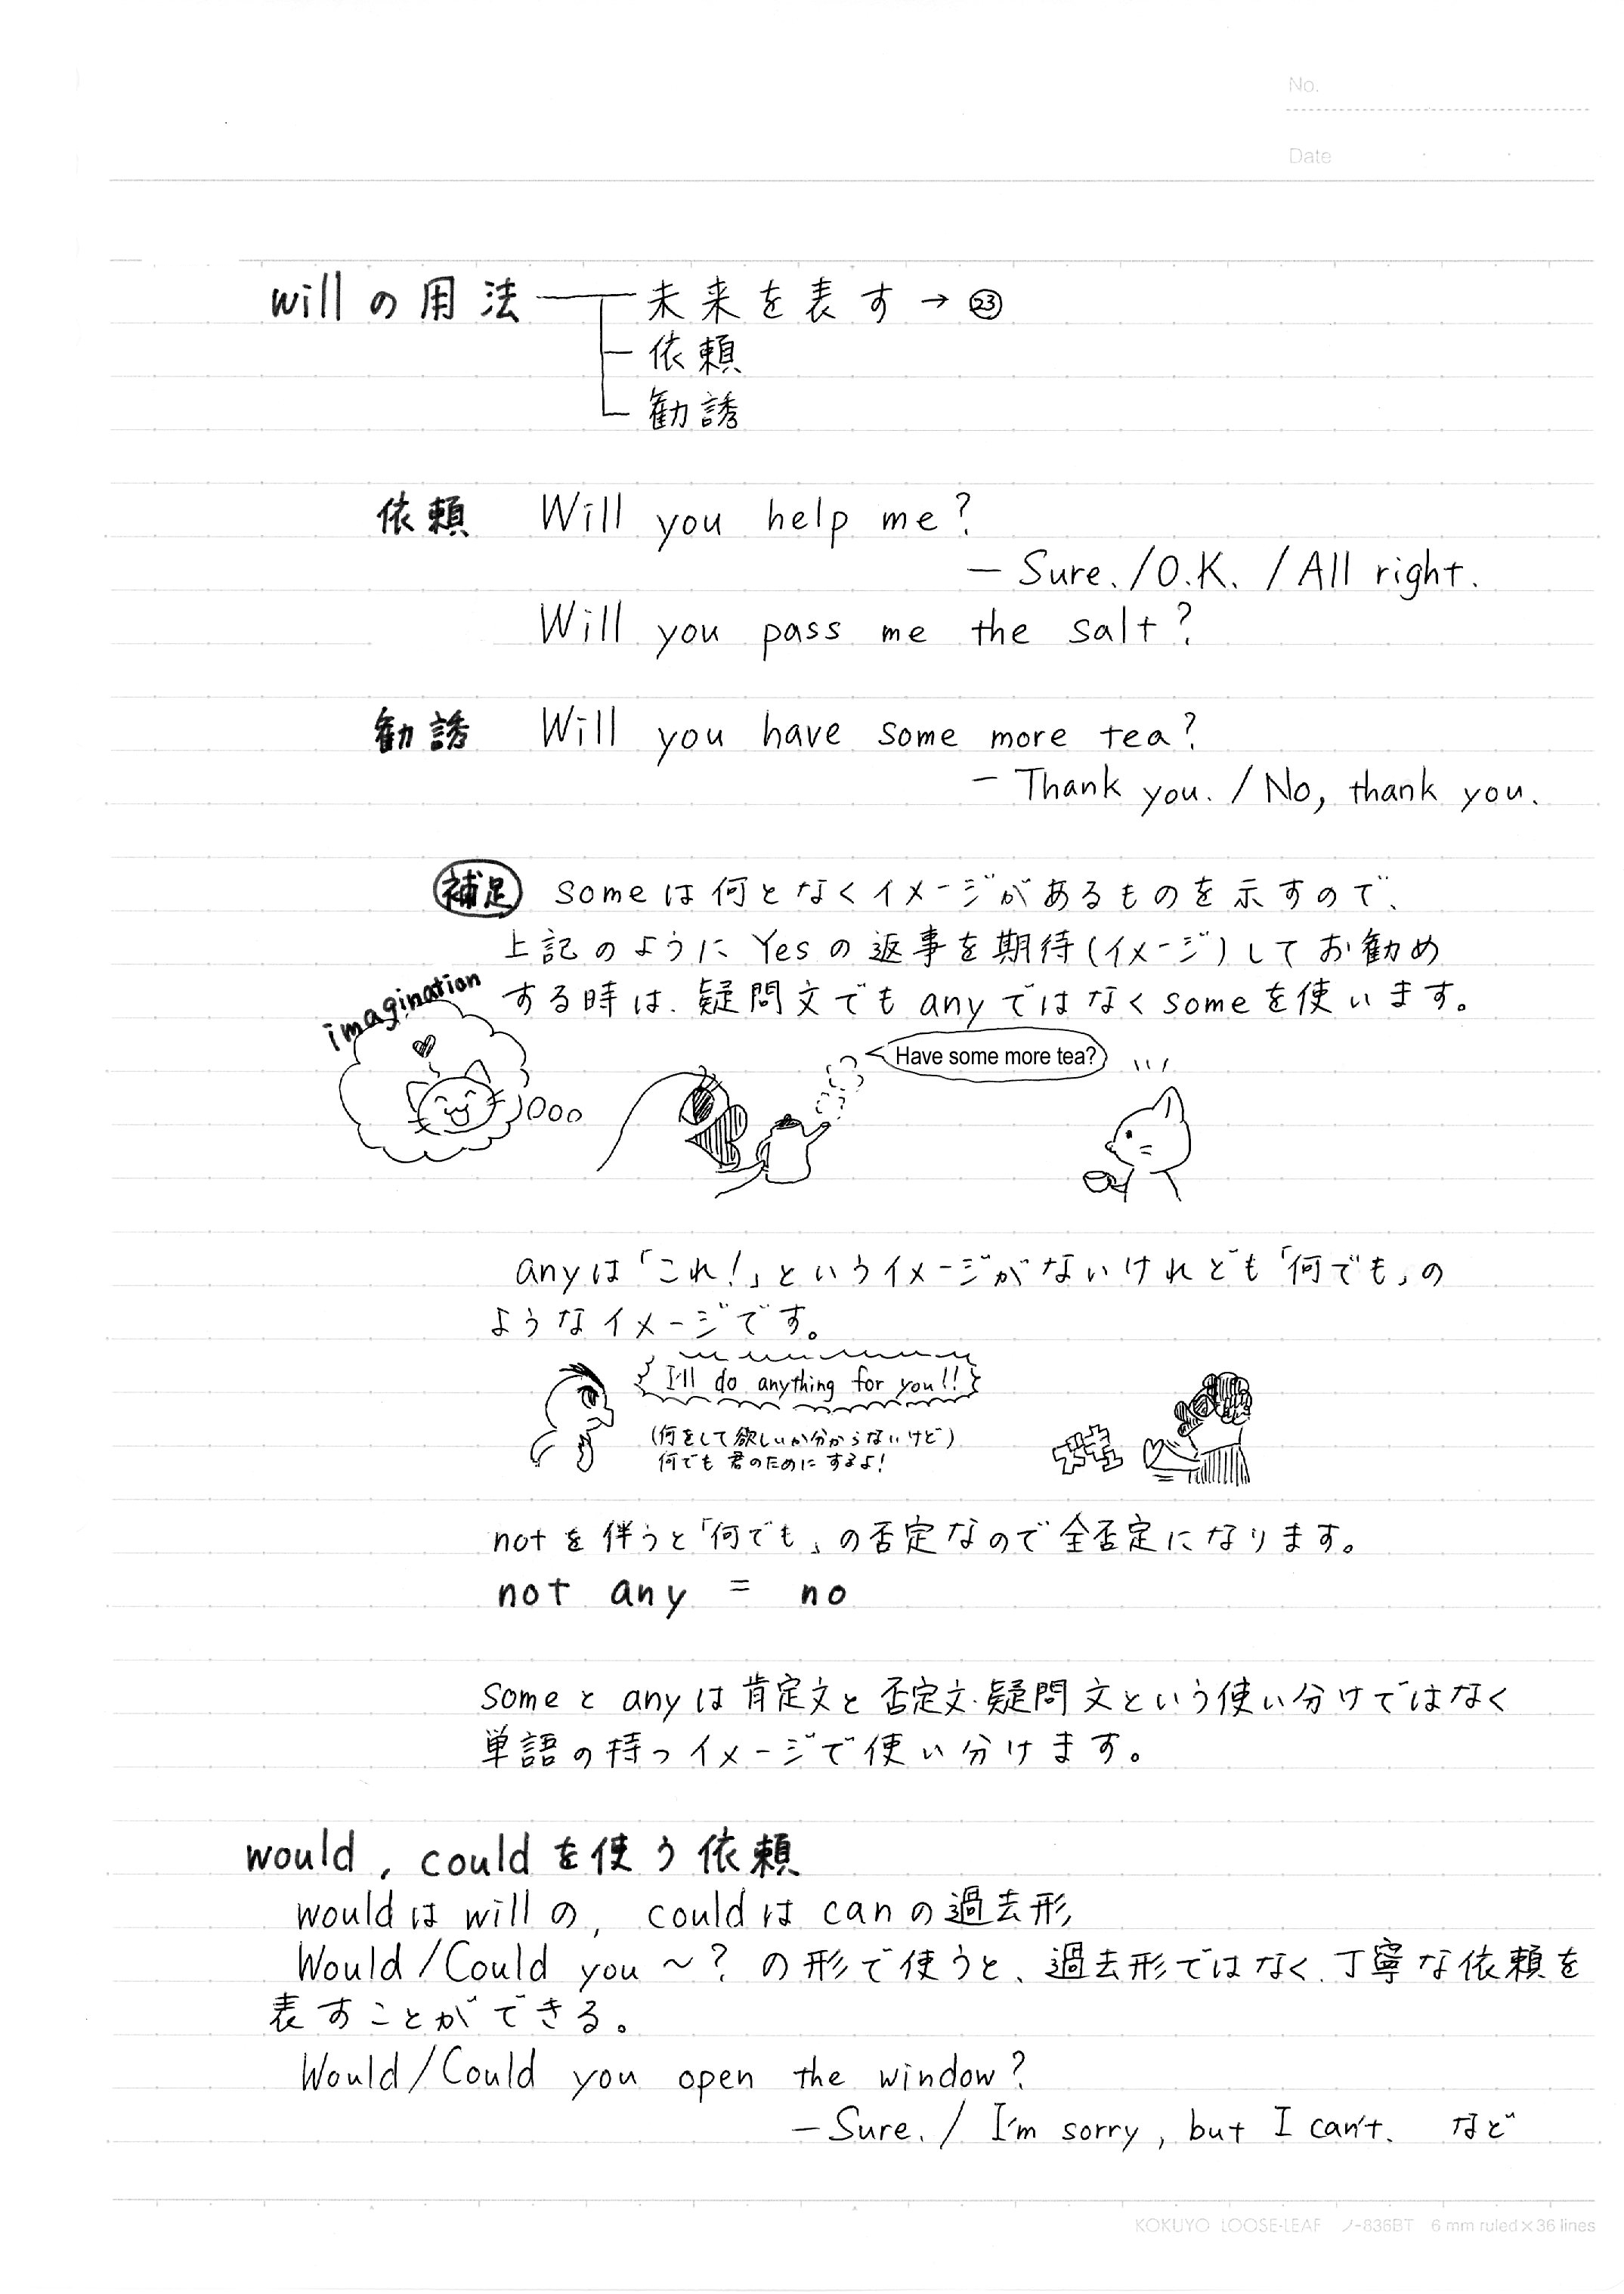 No.
Date
willの用法 未来を表す→㉓
依頼
勧誘
依頼 Will you help me?
— Sure. / O.K. / All right.
Will you pass me the salt?
勧誘 Will you have some more tea?
— Thank you. / No, thank you.
補足 someは何となくイメージがあるものを示すので、
上記のようにYesの返事を期待(イメージ)してお勧め
する時は、疑問文でもanyではなくsomeを使います。
imagination
Have some more tea?
anyは「これ!」というイメージがないけれども「何でも」の
ようなイメージです。
I'll do anything for you!!
(何をして欲しいか分からないけど)
何でも君のためにするよ!
ズキュン
notを伴うと「何でも」の否定なので全否定になります。
not any = no
someとanyは肯定文と否定文・疑問文という使い分けではなく
単語の持つイメージで使い分けます。
would, couldを使う依頼
wouldはwillの, couldはcanの過去形
Would/Could you ~? の形で使うと、過去形ではなく、丁寧な依頼を
表すことができる。
Would/Could you open the window?
— Sure. / I'm sorry, but I can't. など
KOKUYO LOOSE-LEAF ノ-836BT 6 mm ruled×36 lines